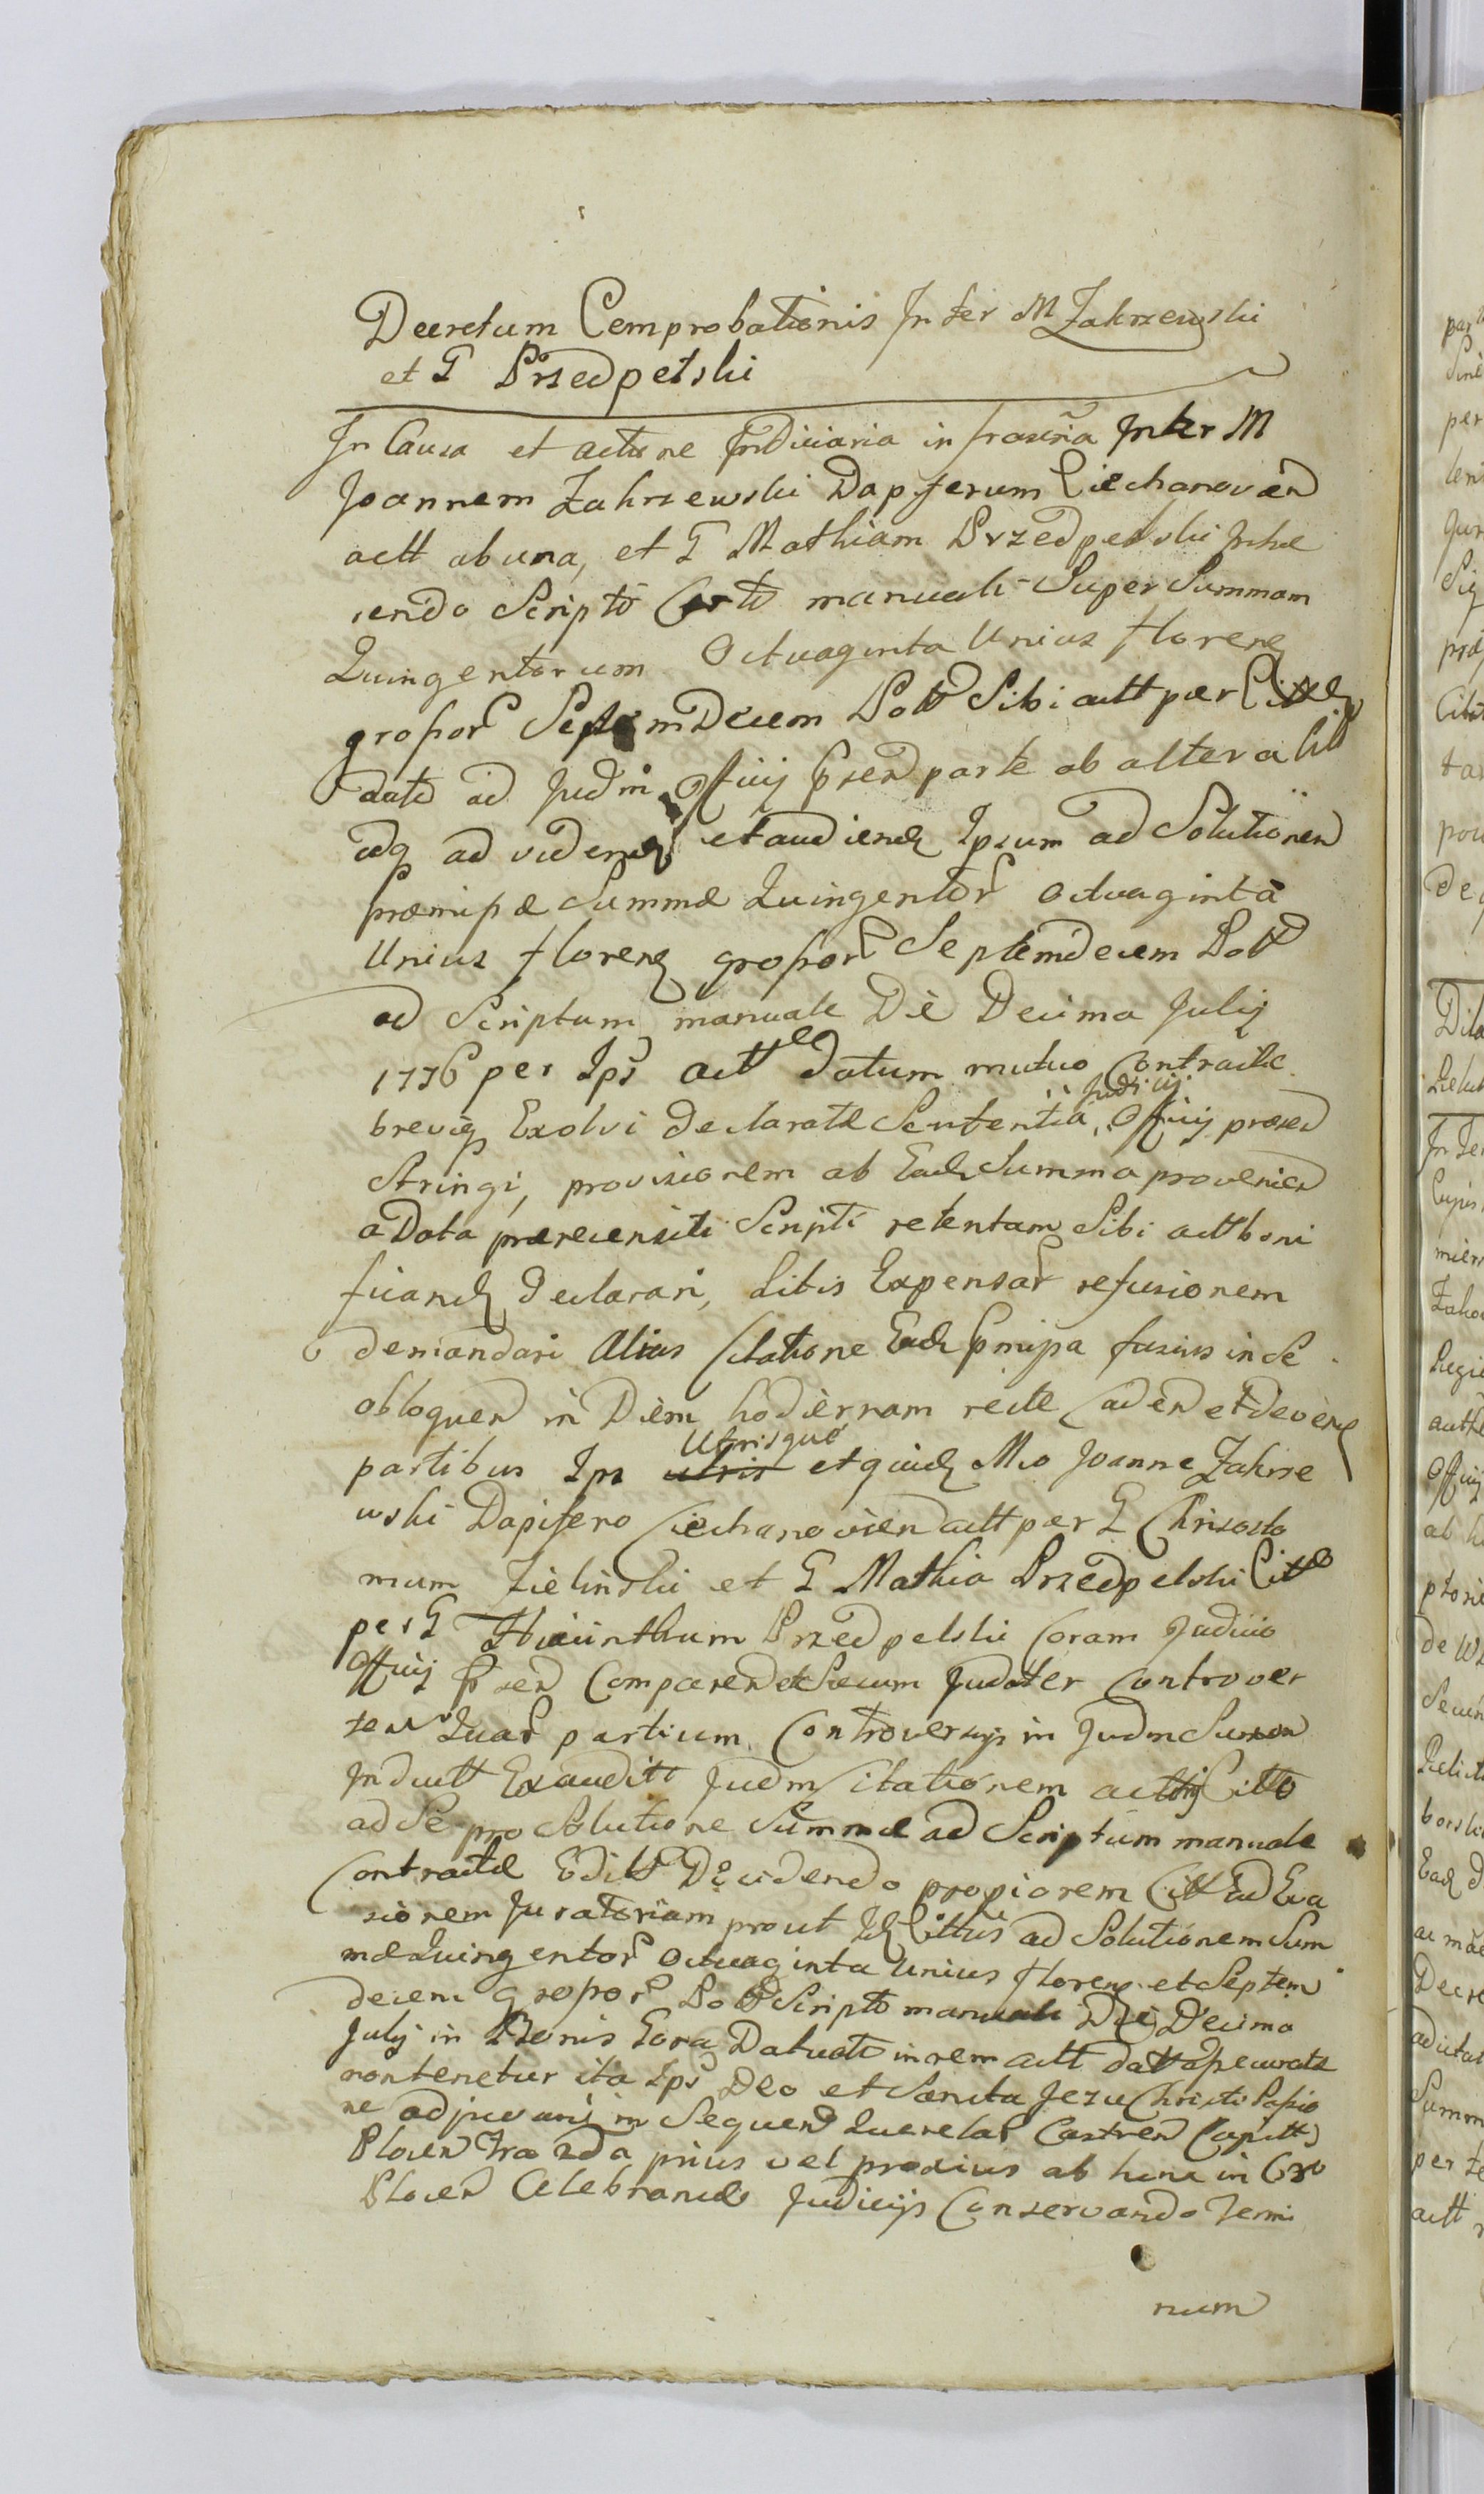 Decretum Comprobationis Inter M Zakrzewski
et G Przedpełski
In Causa et actione Judiciaria infrascrīa Inter M
Joannem Zakrzewski Dapiferum Ciechanovien
actt ab una, et G Mathiam Przedpelski Inhæ
rendo Scripto manuali Super Summam
Quingentorum Octuaginta Unius floren
grossor Septemdecem Poll Sibi actt per Citt
dato ad Judm Officij præsen parte ab altera
adq ad videnq et audiend Ipsum ad Solutionem
præmissæ Summæ Quingentor Octuaginta
Unius floren grossor Septemdecem Poll
ad Scriptum manuale Die Decima Julij
1776 per Ips actt Datum mutuo Contractæ
brevig Exolvi declaratæ Sententia Judicij Officij præsen
Stringi, provisionem ab Ead Summa provenien
a Data prærecensiti Scripti retentam Sibi actt boni
ficand declarari, Litis Expensar refusionem
demandari Alias Citatione Ead præmissa fusius in Se
obloquen in Diem hodiernam recte caden et deven
partibus Ips utris Utrisque et quid Mco Joanne Zakrze
wski Dapifero Ciechanovien actt per G Chrisosto
mum Zielinski et G Mathia Przedpelski Citto
per G Hiacinthum Przedpelski Coram Judicio
Officij præsen Comparen et Secum Judater Controver
ten Quar partium Controversijs in Judm Suum
Induct Exauditis Judm Citationem Citto
ad Se pro Solutione Summæ ad Scriptum manuale
Contractæ Edit Decidendo propiorem Citt ad Eva
sionem Juratoriam prout Id Cittus ad Solutionem Sum
mæ Quingentor Octuaginta Unius floren et Septem
decem grossor Poll Scripto manuali Die Decima
Julij in Bonis Gora in rem actt datt
non tenetur ita Ips Deo et Sancta Jesu Christi Passio
ne adjuvari in Sequen Querelar Castren Capitt
Plocen 2da prius vel proxius ab hinc in Cro
Plocen Celebrand Judicijs Conservando Termi
num